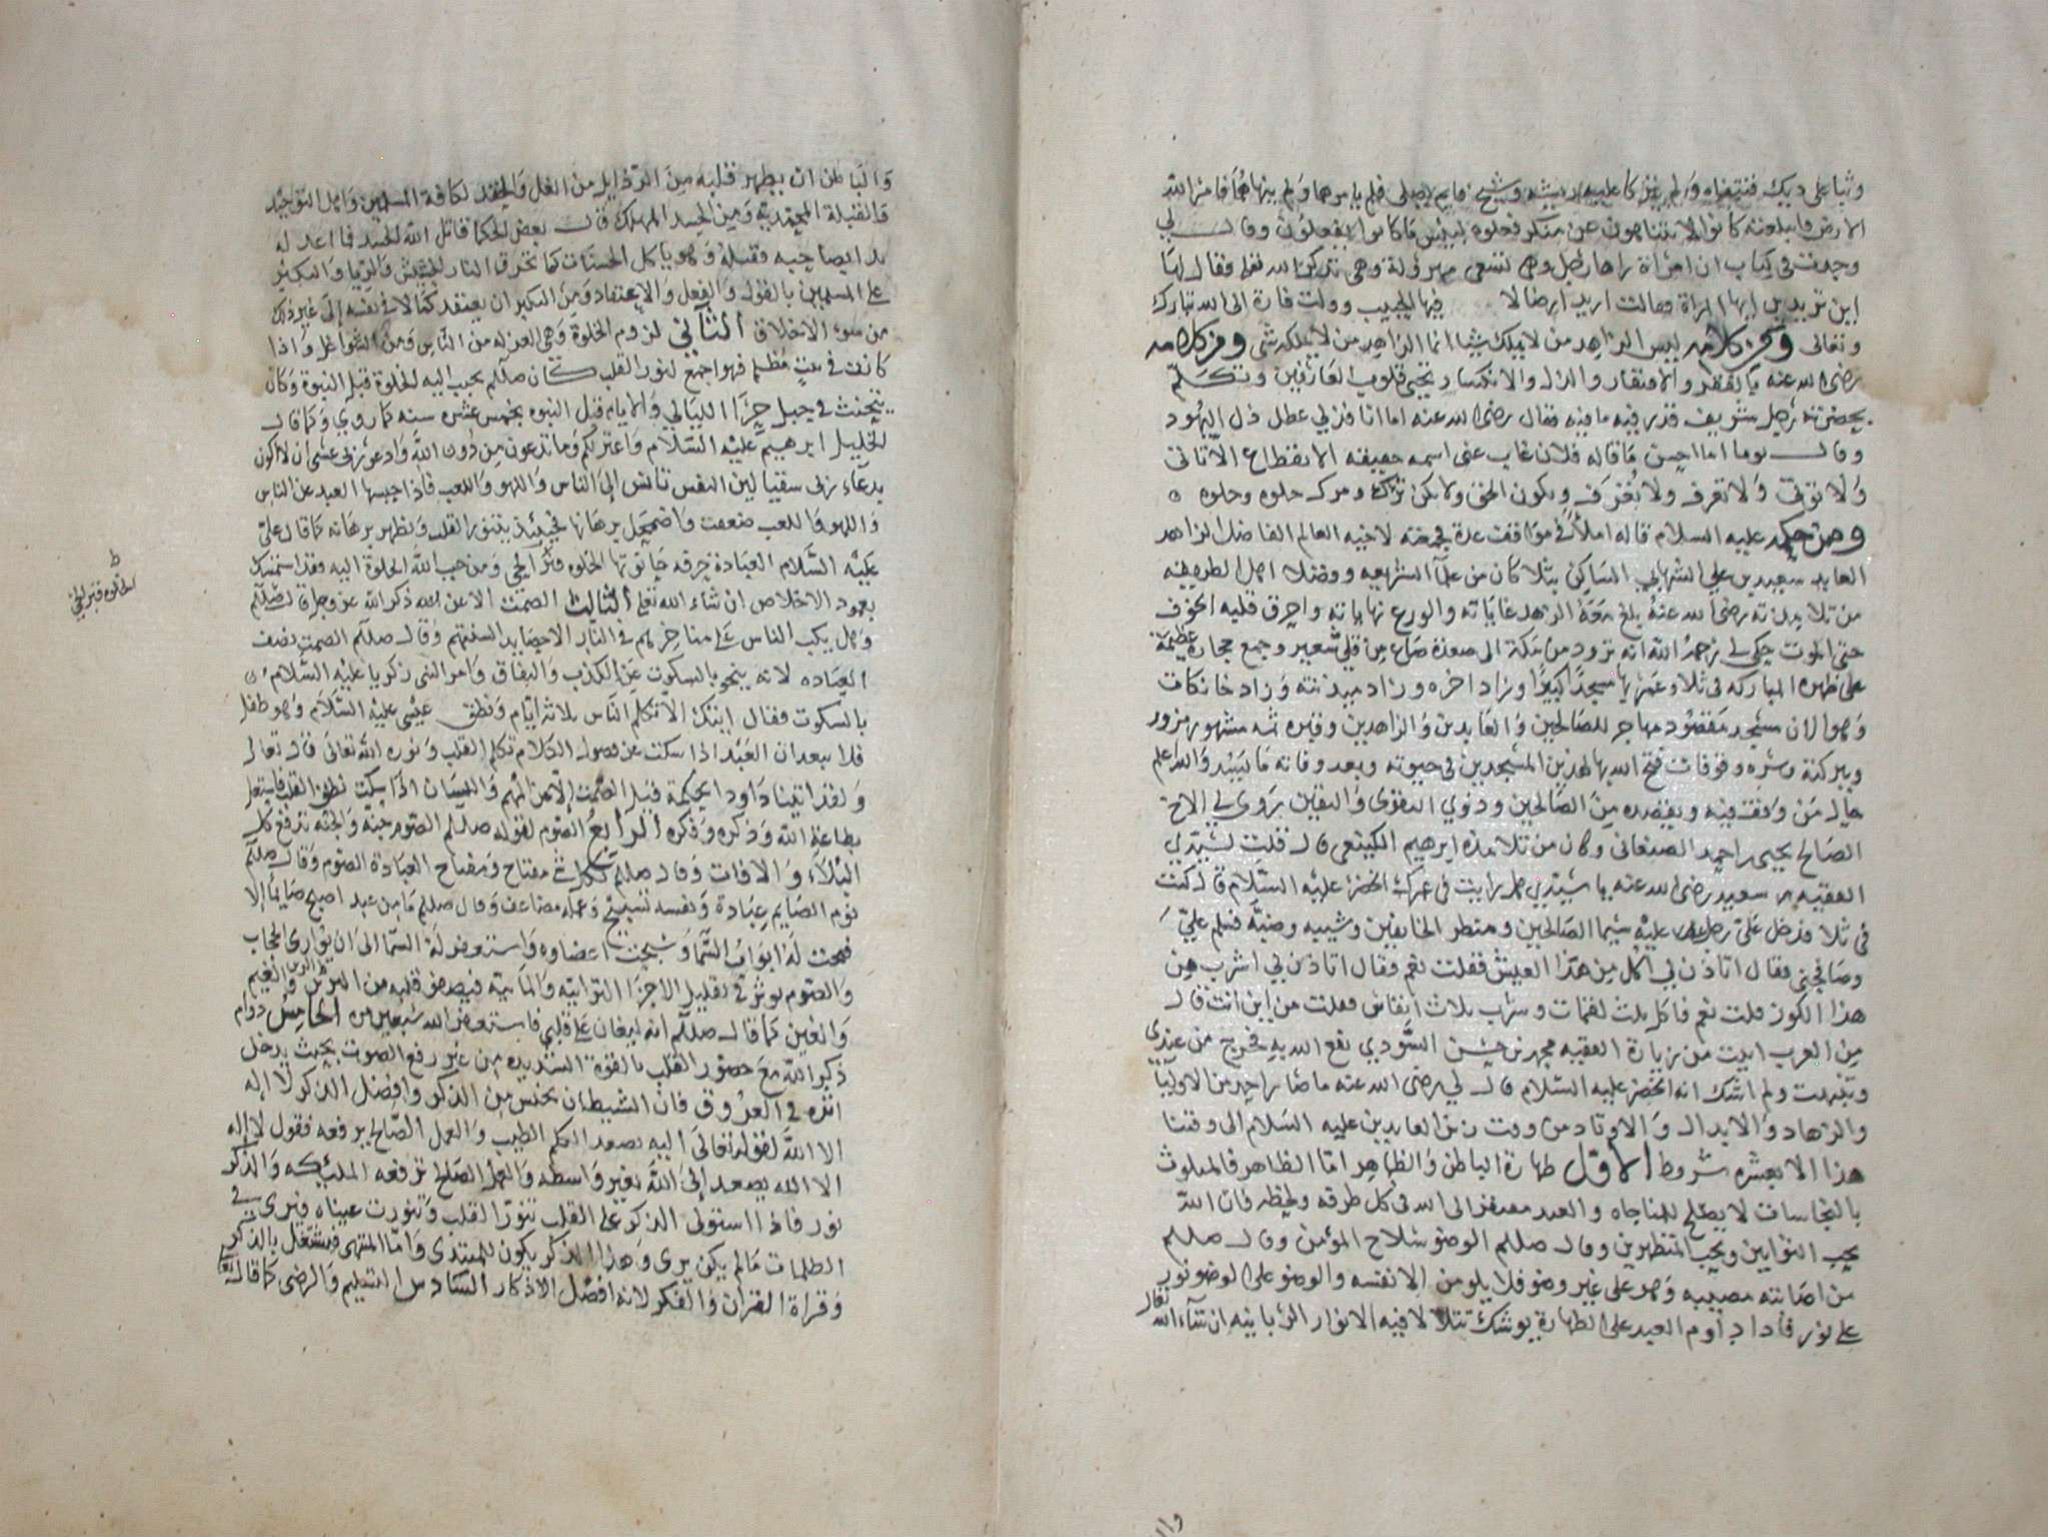 وثبا على ديك فنتفاه ولم يغيرا عليه ريشه وشيخ قايم يصلي فلم يامرهما ولم ينههما فامر الله
الارض فابتلعته كانوا لا يتناهون عن منكر فعلوه لبئس ما كانوا يفعلون وقال لي
وجدت في كتاب ان امراة راها رجل وهي تسعى مهرولة وهي تذكر الله تعلى فقال لها
اين تريدين ايها المراة فقالت اريد ارضا لا فيها الحبيب وولت فارة الى الله تبارك
وتعالى ومن كلامه ليس الزاهد من لا يملك شيا انما الزاهد من لا يملكه شي ومن كلامه
رضى الله عنه بالفقر والافتقار والذل والانكسار تحيى قلوب العارفين وتكلم
بحضرته رجل شريف قدر فيه ما فيه فقال رضى الله عنه اما انا فذلي عطل ذل اليهود
وقال يوما اما احسن ما قاله فلان غاب عني اسمه حقيقته الانقطاع الا تاتي
ولا توتى ولا تعرف ولا تعرف ويكون الحق ولا يكن
ومن حكمه عليه السلام قاله املا في مواقفت عدة جمعته لاخيه العالم الفاضل الزاهد
العابد سعيد بن علي الشهابي الساكن بثلا كان من علما الشريعه وفضلا اهل الطريقه
من تلامذته رضى الله عنه بلغ معه الزهد غاياته والورع نهاياته واحرق قلبه الخوف
حتى الموت حكى لي رحمه الله انه تزود من مكة الى صعدة صاع من قلي شعير وجمع حجارة عظيمة
على ظهره المباركه في ثلا وعمر بها مسجدا كبيرا وزاد اخره وزاد ميذنته وزاد خانكات
وهو الان مسجد مقصود مهاجر للصالحين والعابدين والزاهدين وقبره ثمه مشهور مزور
وببركته وسره وفتوحات فتح الله بها لهذين المسجدين في حيوته وبعد وفاته ما يبيد والله اعلم
حال من وقف فيه ويقصده من الصالحين وذوي التقوى واليقين يروي لي الاخ
الصالح يحيى بن احمد الصنعاني وكان من تلامذة ابرهيم الكينعي قال قلت لسيدي
الفقيه سعيد رضى الله عنه يا سيدي هل رايت في عمرك الخضر عليه السلام قال كنت
في ثلا فدخل علي رجل عليه سيما الصالحين ومنظر الخايفين وشيبه وضيه فسلم علي
وصافحني فقال اتاذن لي اكل من هذا العيش فقلت نعم فقال اتاذن لي اشرب من
هذا الكوز قلت نعم فاكل ثلث لقمات وشرب ثلاث انفاس فقلت من اين انت قال
من العرب اتيت من زيارة الفقيه محمد بن حسن السودي نفع الله به فخرج من عندي
وتنبهت ولم اشك انه الخضر عليه السلام قال لي رضى الله عنه ما صار احد من الاوليا
والزهاد والابدال والاوتاد من وقت زين العابدين عليه السلام الى وقتنا
هذا الا بعشره شروط الاول طهارة الباطن والظاهر اما الظاهر فالملوث
بالنجاسات لا يصلح للمناجاه والعبد مفتقر الى الله في كل طرفه ولحظه فان الله
يحب التوابين ويحب المتطهرين وقال صللم الوضو سلاح المؤمن وقال صللم
من اصابته مصيبه وهو على غير وضو فلا يلومن الا نفسه والوضو على الوضو نور
على نور فاذا داوم العبد على الطهارة يوشك تتلالا فيه الانوار الربانيه ان شاء الله تعالى
وال
والباطن ان يطهر قلبه من الرذايل من الغل والحقد لكافة المسلمين واهل التوحيد
والقبلة المحمديه ومن الحسد المهلك قال بعض الحكما قاتل الله الحسد فما اعدله
بدا بصاحبه فقتله وهو ياكل الحسنات كما تحرق النار الحشيش والريا والتكبر
على المسلمين بالقول والفعل والاعتقاد ومن التكبر ان يعتقد كمالا في نفسه الى غير ذلك
من سوء الاخلاق الثاني لزوم الخلوة وهي العزله من الناس ومن الشواغل واذا
كانت في بيت مظلم فهو اجمع لنور القلب كان صللم يحبب اليه الخلوة قبل النبوة وكان
يتحنث في جبل حرا الليالي والايام قبل النبوه بخمس عشره سنه كما روي وكما قال
الخليل ابرهيم عليه السلام واعتزلكم وما تدعون من دون الله وادعو ربى عسى ان لا اكون
بدعاء ربى شقيا لان النفس تانس الى الناس واللهو واللعب فاذا حبسها العبد عن الناس
واللهو واللعب ضعفت واضمحل برهانها فحينئذ يتنور القلب ويظهر برهانه كما قال علي
عليه السلام العبادة حرفه حانوتها الخلوه
الخلوه قبر الحي
بعمود الاخلاص ان شاء الله تعلى الثالث الصمت الا عن ذكر الله عز وجل قال صللم
وهل يكب الناس على مناخرهم في النار الا حصايد السنتهم وقال صللم الصمت نصف
العباده لانه ينجو بالسكوت عن الكذب والنفاق وامر النبى زكريا عليه السلام
بالسكوت فقال ايتك الا تكلم الناس ثلاثه ايام ونطق عيسى عليه السلام وهو طفل
فلا يبعد ان العبد اذا سكت عن فضول الكلام تكلم القلب ونوره الله تعالى قال تعالى
ولقد اتينا داود الحكمة قيل الصمت الا عن المهم واللسان اذا سكت نطق القلب فاشتغل
بطاعة الله وذكره وفكره الرابع الصوم لقوله صللم الصوم جنة والجنة تدفع كل
البلاء والافات وقال صللم لكل شي مفتاح ومفتاح العبادة الصوم وقال صللم
نوم الصايم عبادة ونفسه تسبيح وعمله مضاعف وقال صللم ما من عبد اصبح صايما الا
فتحت له ابواب السما وسبحت اعضاوه واستغفر له اهل السما الى ان توارى الحجاب
والصوم يوثر في تقليل الاجزا الترابيه والمائيه فيصفو قلبه من الرين والغيم
والغين كما قال صللم انه ليغان على قلبي فاستغفر الله سبعين مره الخامس دوام
ذكر الله مع حضور القلب بالقوة الشديده من غير رفع الصوت بحيث يدخل
اثره في العروق فان الشيطان يخنس من الذكر وافضل الذكر لا اله
الا الله لقوله تعالى اليه يصعد الكلم الطيب والعمل الصالح يرفعه فقول لا اله
الا الله يصعد الى الله بغير واسطه والعمل الصالح ترفعه الملئكه والذكر
نور فاذا استولى الذكر على القلب تنور القلب وتنورت عيناه فيرى في
الظلمات مالم يكن يرى وهذا الذكر يكون للمبتدى واما المنتهى فيشتغل بالذكر
وقراة القران والفكر لانه افضل الاذكار السادس التسليم والرضى كما قال